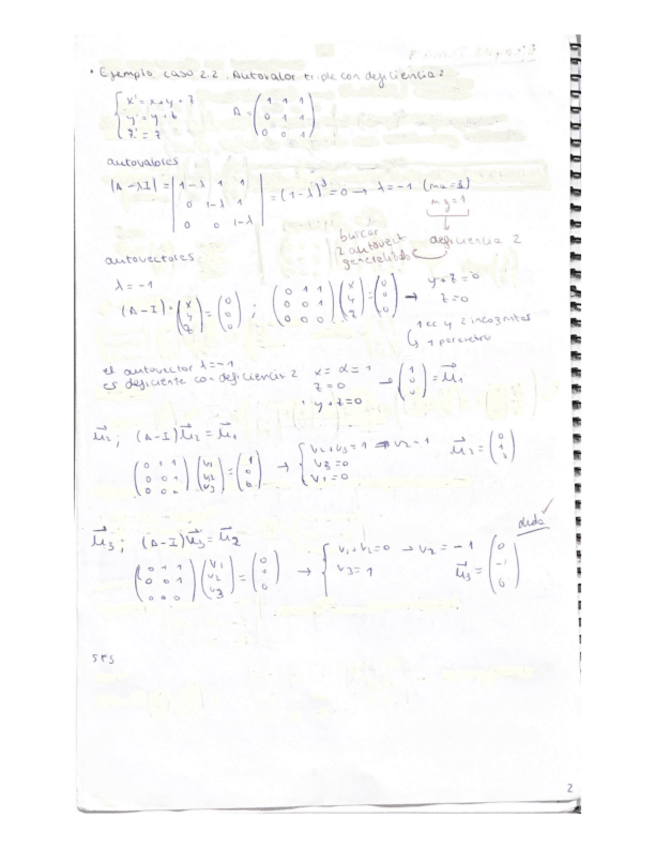 • Ejemplo caso 2.2. Autovalor triple con deficiencia 2
{ x' = x + y + z
y' = y + z
z' = z
A = ( 1 1 1
0 1 1
0 0 1 )
autovalores
|A - λI| = | 1-λ 1 1
0 1-λ 1
0 0 1-λ | = (1-λ)³ = 0 → λ = -1 (ma = 3)
mg = 1
deficiencia 2
buscar
2 autovect
generalizados
autovectores
λ = -1
(A - I) · (x y z) = (0 0 0) ; (0 1 1
0 0 1
0 0 0) (x y z) = (0 0 0) → y + z = 0
z = 0
1 ec y 2 incognitas
↳ 1 parametro
el autovector λ = -1
es deficiente con deficiencia 2
x = α = 1
z = 0
y + z = 0
→ (1 0 0) = u₁
u₂ ; (A - I) u₂ = u₁
(0 1 1
0 0 1
0 0 0) (v1 v2 v3) = (1 0 0) → { v2 + v3 = 1 → v2 = 1
v3 = 0
v1 = 0
u₂ =
duda ✓
u₃ ; (A - I) u₃ = u₂
(0 1 1
0 0 1
0 0 0) (v1 v2 v3) = (0 1 0) → { v1 + v2 = 0 → v2 = -1
v3 = 1
u₃ = (0 -1
2